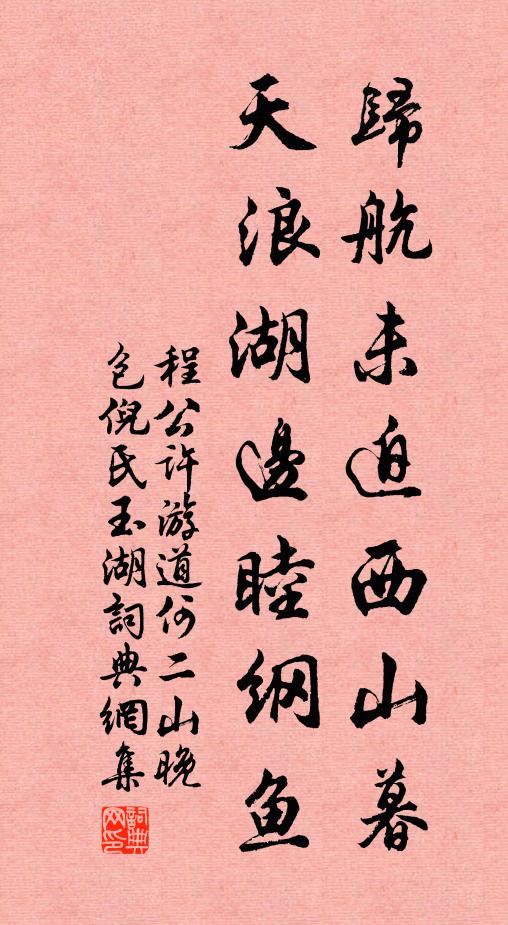 歸航未迫西山暮
天浪湖邊睦網魚
程公許游道何二山晚
色倪氏玉湖詞典網集
詞典网印